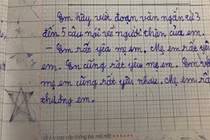 Em hãy viết đoạn văn ngắn từ 3
đến 5 câu nói về người thân của em.
- Em rất yêu mẹ em, mẹ em rất yêu
em. Em cũng rất yêu mẹ em. Em với
mẹ em cũng rất yêu nhau. Mẹ em rất
thương em.